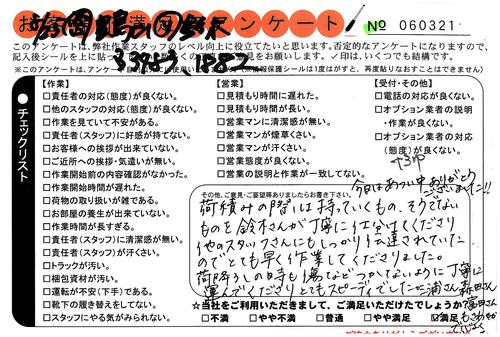 アンケート
№ 060321
このアンケートは、弊社作業スタッフのレベル向上に役立てたいと思います。否定的なアンケートになりますので、
✓印は、いくつでも結構です。
チェックリスト
【作業】
□責任者の対応(態度)が良くない。
□他のスタッフの対応(態度)が良くない。
□作業を見ていて不安がある。
□責任者(スタッフ)に好感が持てない。
□お客様への挨拶が出来ていない。
□ご近所への挨拶・気遣いが無い。
□作業開始前の内容確認がなかった。
□作業開始時間が遅れた。
□荷物の取り扱いが雑である。
□お部屋の養生が出来ていない。
□作業時間が長すぎる。
□責任者(スタッフ)に清潔感が無い。
□責任者(スタッフ)が汗くさい。
□トラックが汚い。
□梱包資材が汚い。
□運転が不安(下手)である。
□靴下の履き替えをしてない。
□スタッフにやる気がみられない。
【営業】
□見積もり時間に遅れた。
□見積もり時間が長い。
□営業マンに清潔感が無い。
□営業マンが煙草くさい。
□営業マンが汗くさい。
□営業態度が良くない。
□営業の説明と作業が一致してない。
【受付・その他】
□電話の対応が良くない。
□オプション業者の説明
・作業が良くない。
□オプション業者の対応
(態度)が良くない。
その他、ご意見・ご要望等ありましたらお書き下さい。
今日はあつい中ありがとう
ございました!!
荷積みの際には持っていくもの、そうでない
ものを鈴木さんが丁寧に仕分けてくださり
他のスタッフさんにもしっかり伝達されていた
のでとても早く作業してくださりました。
荷降ろしの時も傷などつかないように丁寧に
運んでくださりとてもスピーディでした
☆当社をご利用いただきまして、ご満足いただけてしょうか?
□不満 □やや不満 □普通 □やや満足 ☑満足